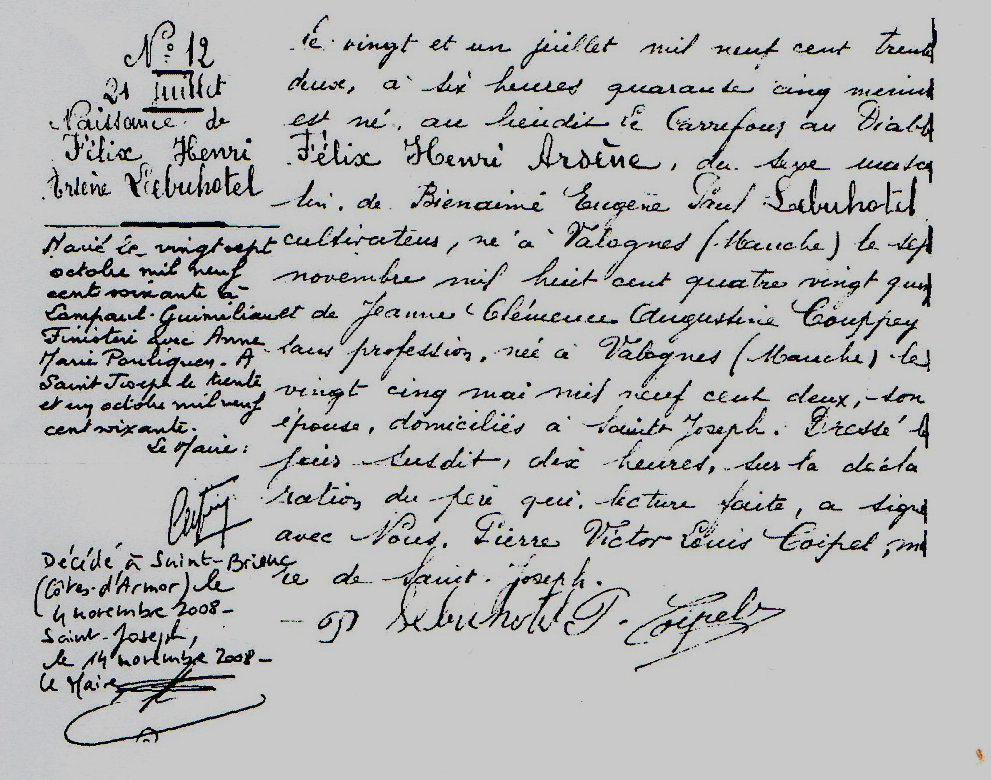 N° 12
21 Juillet
Naissance de
Félix Henri
Arsène Lebuhotel
Marié le vingt sept
octobre mil neuf
cent soixante à
Lampaul-Guimiliau
Finistère avec Anne
Marie Pouliquen. A
Saint Joseph le trente
et un octobre mil neuf
cent soixante.
Le Maire:
Décédé à Saint-Brieuc
(Côtes-d'Armor) le
4 novembre 2008-
Saint-Joseph,
le 14 novembre 2008-
Le Maire
Le vingt et un juillet mil neuf cent trente
deux, à six heures quarante cinq minu
est né, au lieudit Le Carrefour au Diabl
Félix Henri Arsène, du sexe mascu
lin, de Bienaimé Eugène Paul Lebuhotel
cultivateur, né à Valognes (Manche) le sep
novembre mil huit cent quatre vingt qu
et de Jeanne Clémence Augustine Couppey
sans profession, née à Valognes (Manche) le
vingt cinq mai mil neuf cent deux, son
épouse, domiciliés à Saint Joseph. Dressé l
jour susdit, dix heures, sur la décla
ration du père qui, lecture faite, a signé
avec Nous, Pierre Victor Louis Coipel, m
re de Saint-Joseph.
Lebuhotel P. Coipel